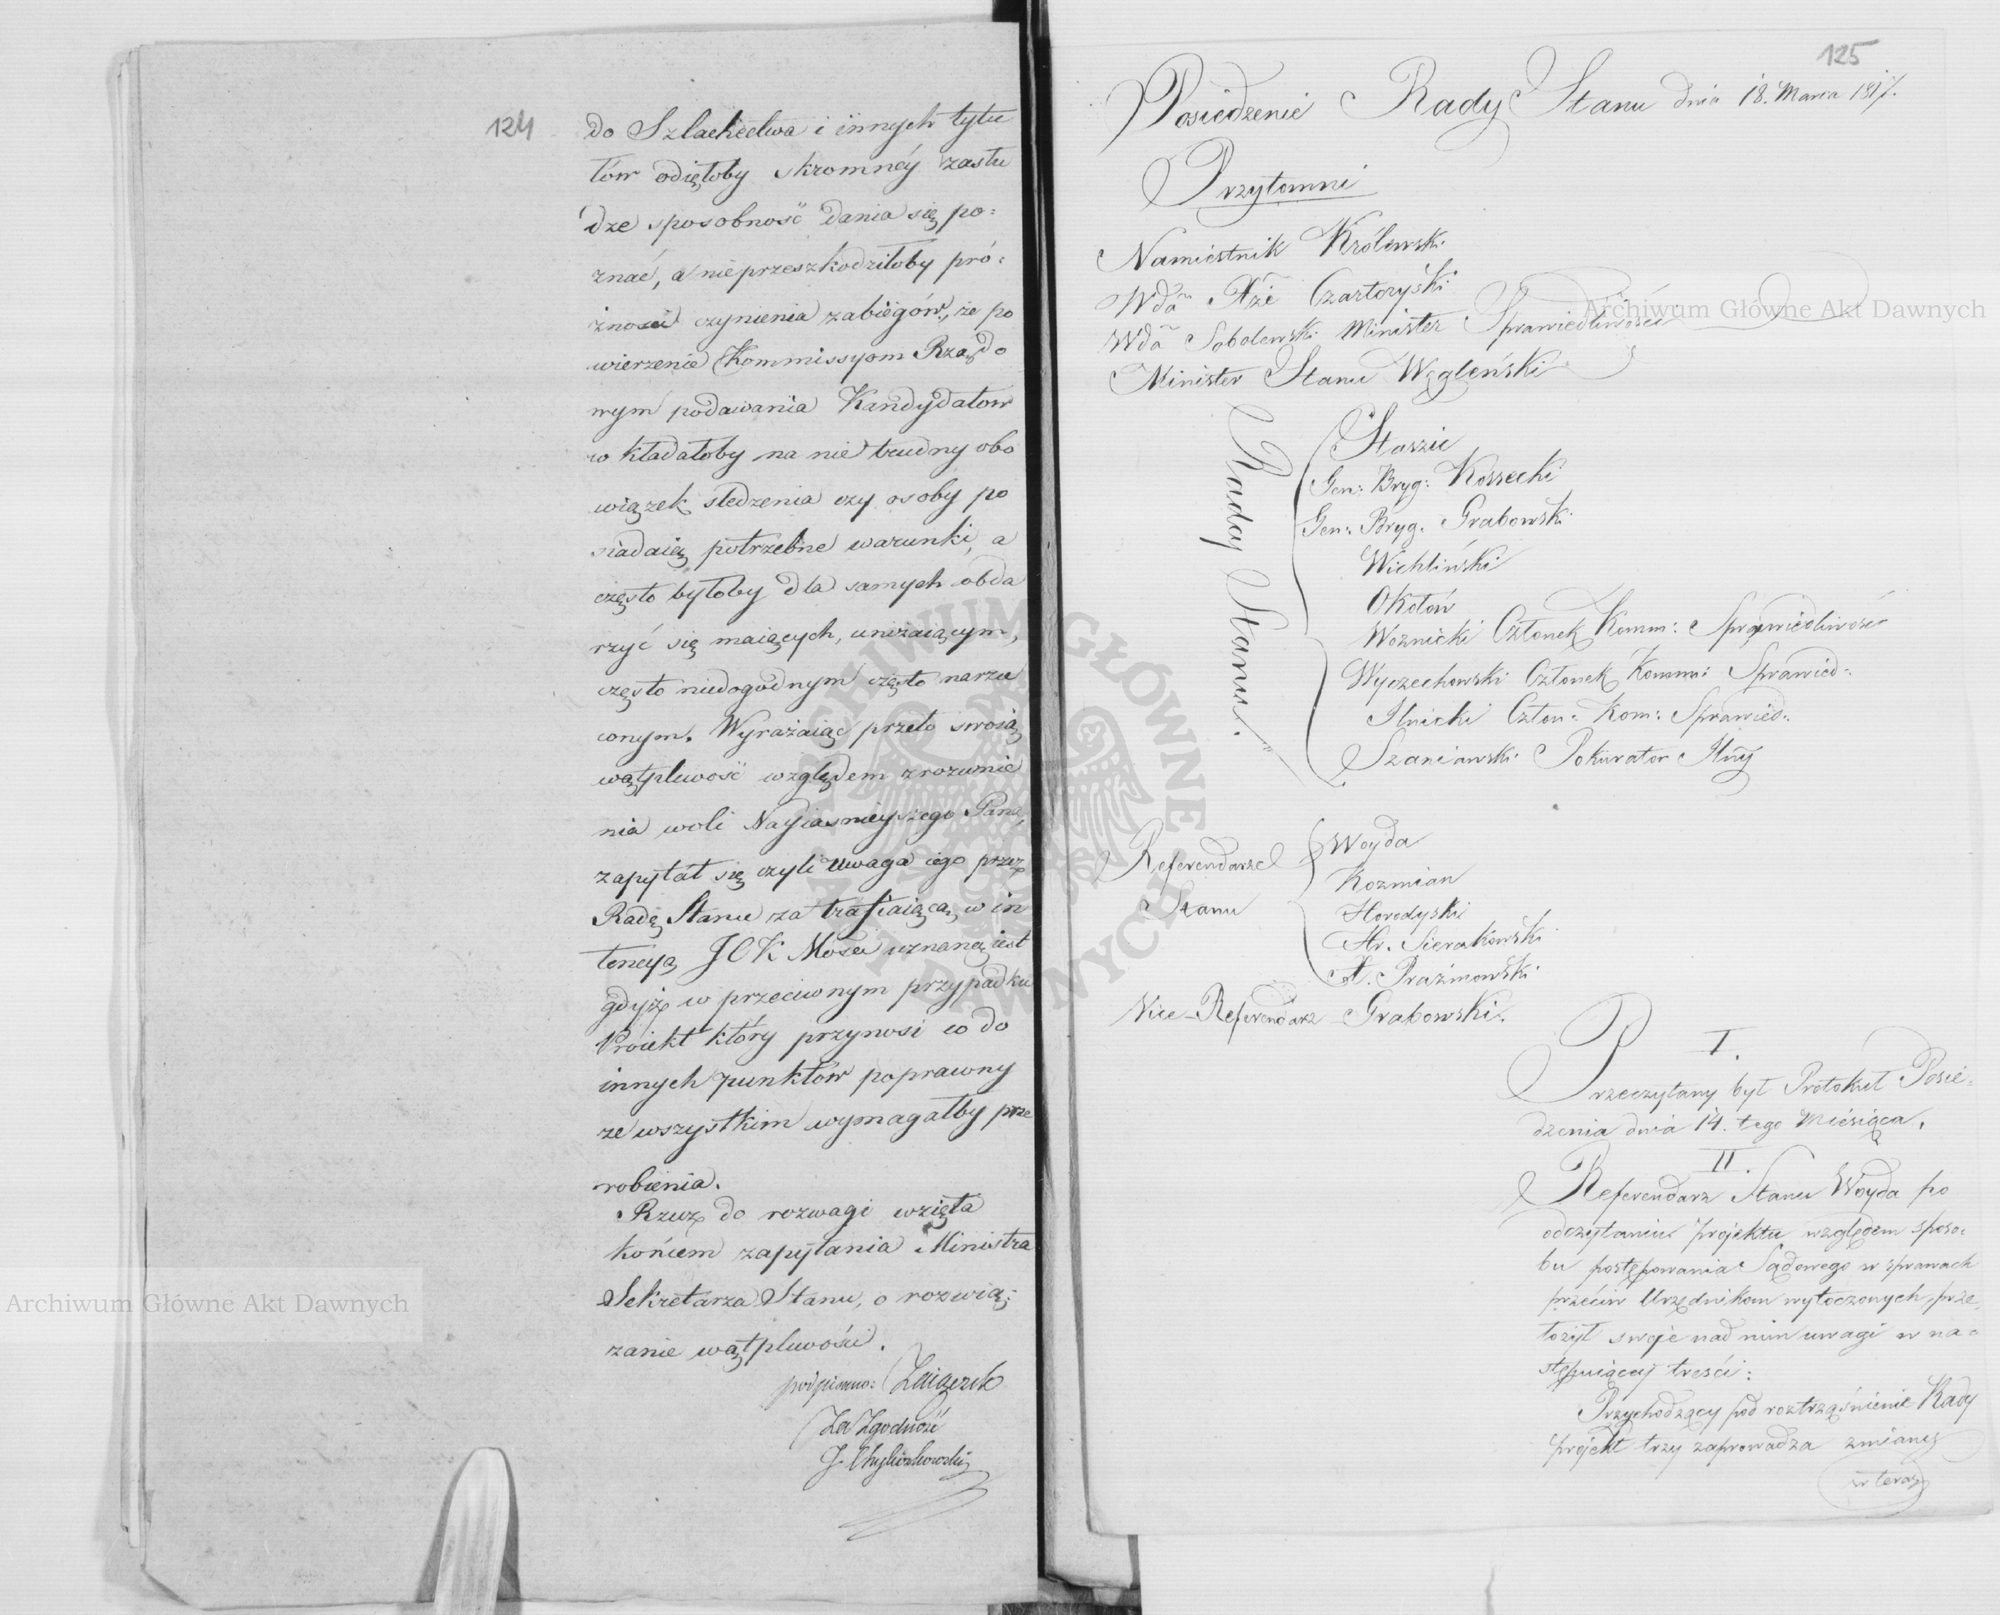 124
do Szlachectwa i innych tytu
łów odięłoby skromnéy zasłu
dze sposobność dania się po:
znać, a nieprzeszkodziłoby pró:
żności czynienia zabiegów, że po
wierzenie Kommissyom Rządo
wym podawania Kandydatow
wkładałoby na nie trudny obo
wiązek śledzenia czy osoby po
siadaią potrzebne warunki, a
często byłoby dla samych obda
rzyć się maiących, uniżaiącym,
często niedogodnym często narzu
conym. Wyrażaiąc przeto swoią
wątpliwość względem zrozumie
nia woli Nayiaśnieyszego Pana,
zapytał się czyli uwaga iego przez
Radę Stanu za trafiaiącą w in
tencyą JCK Mości uznaną iest
gdyż w przeciwnym przypadku
Proiekt który przynosi co do
innych punktów poprawny
ze wszystkim wymagałby prze
robienia.
Rzecz do rozwagi wzięta
końcem zapytania Ministra
Sekretarza Stanu, o rozwią:
zanie wątpliwości.
podpisano: Zaiączek
Za Zgodność
125
Posiedzenie Rady Stanu dnia 18. Marca 1817.
Przytomni
Namiestnik Królewski
Wda Xże Czartoryski
Wda Sobolewski Minister Sprawiedliwości
Minister Stanu Węgleński
Radcy Stanu.
Staszic
Gen: Bryg: Kossecki
Gen: Bryg. Grabowski
Wichliński
Okołow
Woznicki Członek Komm: Sprawiedliwości
Wyczechowski Członek Komm: Sprawied:
Ilnicki Człon: Kom: Sprawied:
Szaniawski Pokurator
Referendarze Stanu
Woyda
Kozmian
Horodyski
Hr. Sierakowski
X. Prażmowski
Vice-Referendarz Grabowski.
I.
Przeczytany był Protokuł Posie:
dzenia dnia 14. tego Miesiąca.
II.
Referendarz Stanu Woyda po
odczytaniu projektu względem sposo:
bu postępowania Sądowego w sprawach
przeciw Urzędnikom wytoczonych, prze:
łożył swoje nad nim uwagi w na:
stępuiącey treści:
Przychodzący pod roztrząśnienie Rady
projekt trzy zaprowadza zmiany
w teraz
Archiwum Główne Akt Dawnych
Archiwum Główne Akt Dawnych
ARCHIWUM GŁÓWNE AKT DAWNYCH